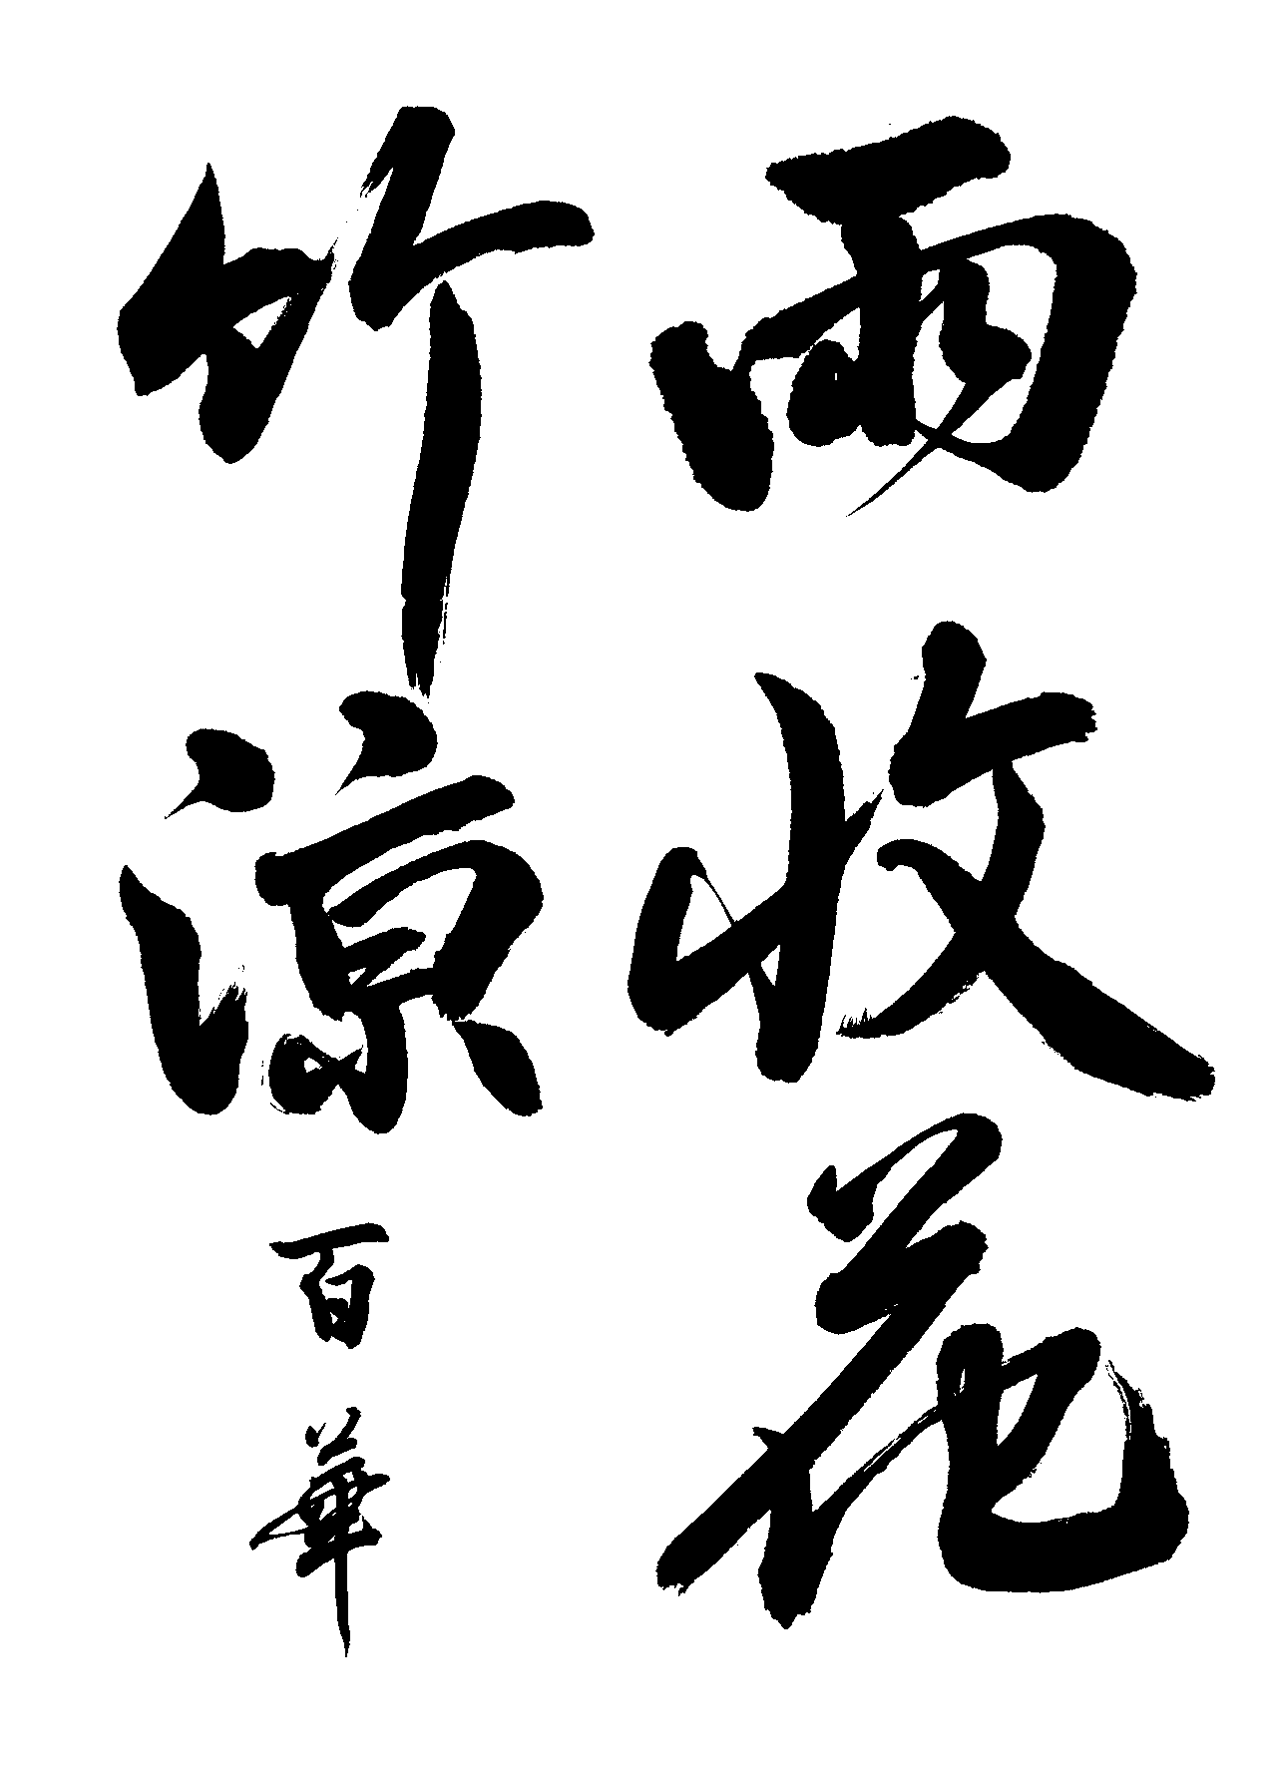 雨收花
竹涼
百華